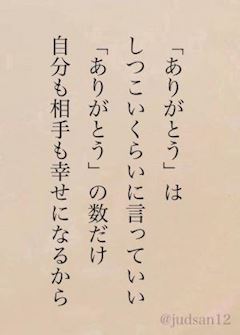 「ありがとう」は
しつこいくらいに言っていい
「ありがとう」の数だけ
自分も相手も幸せになるから
@judsan12